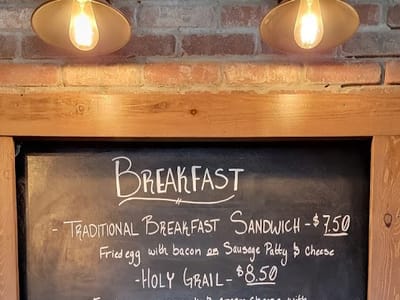 BREAKFAST
- TRADITIONAL BREAKFAST SANDWICH - $7.50
Fried egg with bacon or Sausage Patty & Cheese
- HOLY GRAIL - $8.50